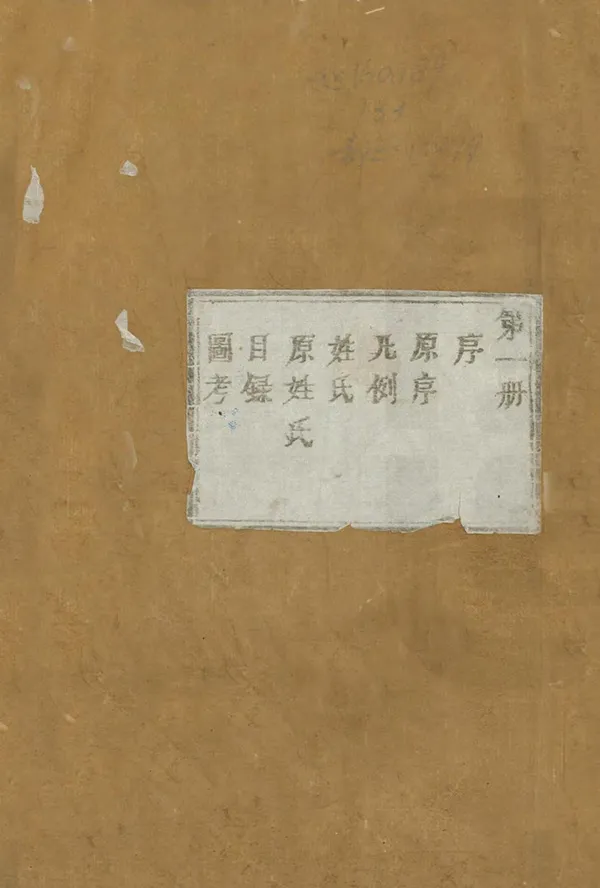 第一册
序
原序
凡例
姓氏
原姓氏
目録
圖考